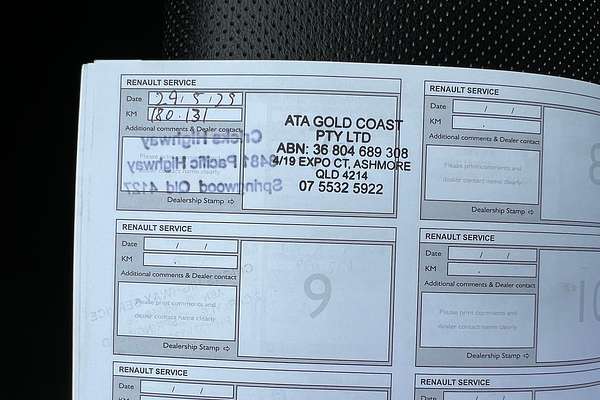 RENAULT SERVICE
Date 29.5.25
KM 180.131
Additional comments & Dealer contact
Please print comments and
dealer contact name clearly
Dealership Stamp ⇨
ATA GOLD COAST
PTY LTD
ABN: 36 804 689 308
4/19 EXPO CT, ASHMORE
QLD 4214
07 5532 5922
Highway
3481 Pacific Highway
Springwood Qld 4127
RENAULT SERVICE
Date / /
KM .
Additional comments & Dealer contact
Please print comments and
dealer contact name clearly
Dealership Stamp ⇨
8
RENAULT SERVICE
Date / /
KM .
Additional comments & Dealer contact
Please print comments and
dealer contact name clearly
Dealership Stamp ⇨
9
RENAULT SERVICE
Date / /
KM .
Additional comments & Dealer contact
Please print comments and
dealer contact name clearly
Dealership Stamp ⇨
10
RENAULT SERVICE
Date / /
KM
RENAULT SERVICE
Date / /